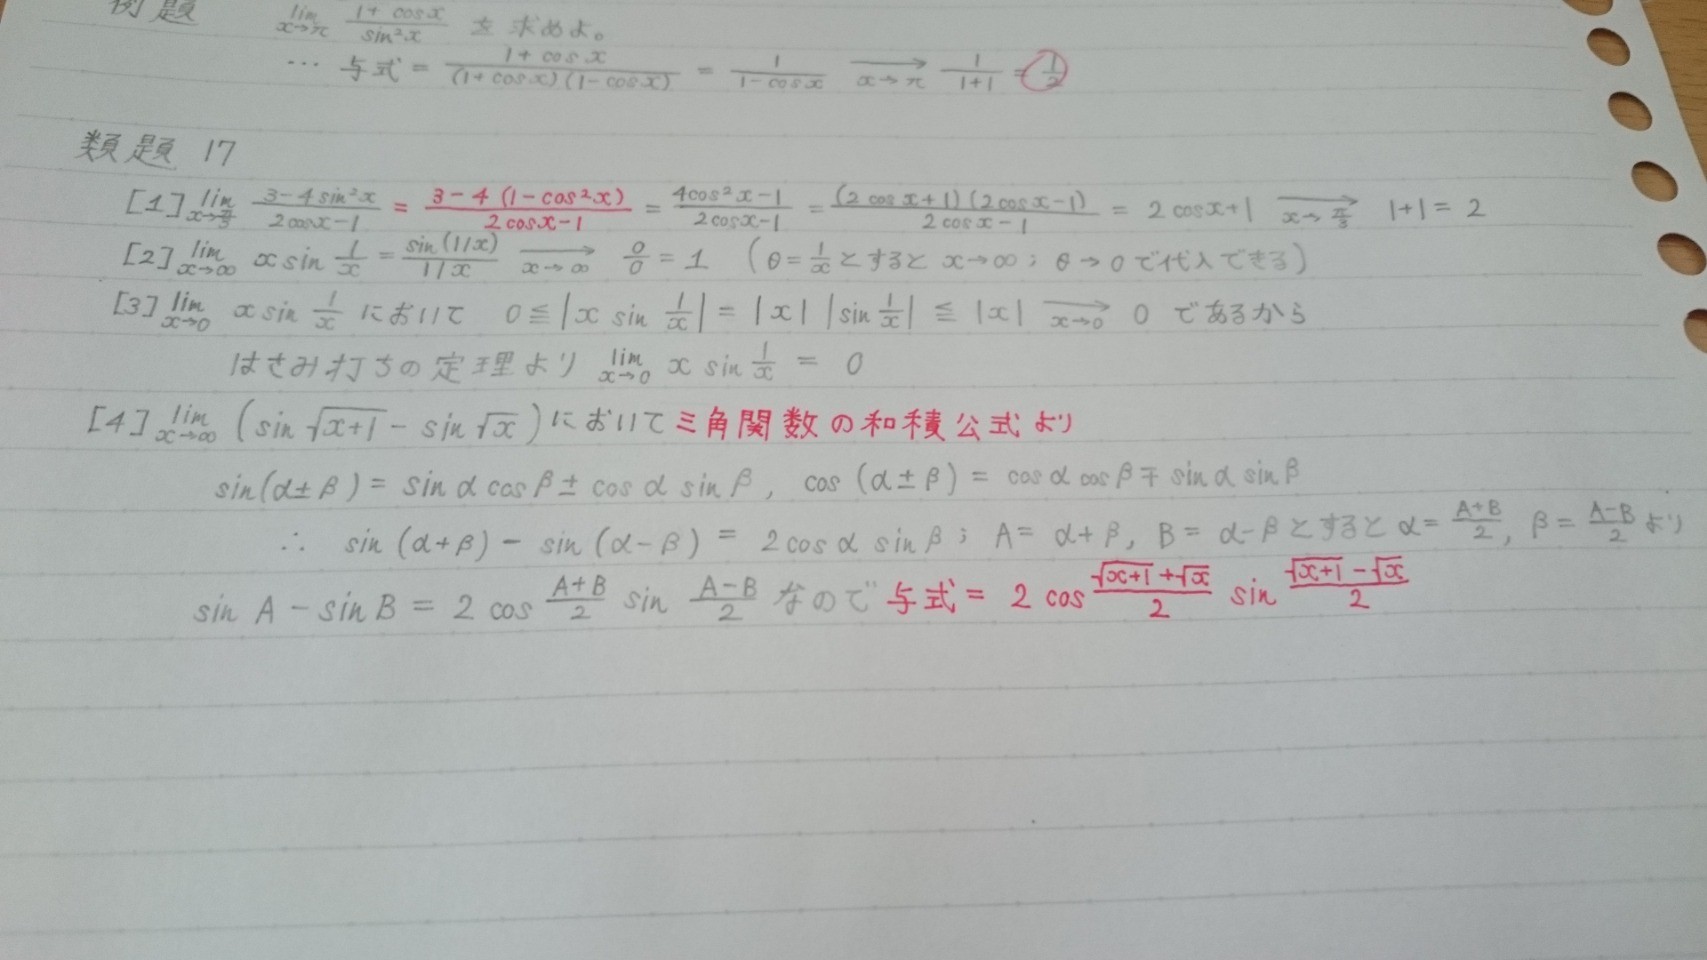 例題 lim x→π (1+cosx)/(sin²x) を求めよ。
… 与式 = (1+cosx)/((1+cosx)(1-cosx)) = 1/(1-cosx) → x→π 1/(1+1) = 1/2
類題 17
[1] lim x→π/3 (3-4sin²x)/(2cosx-1) = (3-4(1-cos²x))/(2cosx-1) = (4cos²x-1)/(2cosx-1) = ((2cosx+1)(2cosx-1))/(2cosx-1) = 2cosx+1 → x→π/3 1+1=2
[2] lim x→∞ x sin 1/x = sin(1/x)/(1/x) → x→∞ 0/0 = 1 (θ=1/xとすると x→∞; θ→0で代入できる)
[3] lim x→0 x sin 1/x において 0≦|x sin 1/x| = |x||sin 1/x| ≦ |x| → x→0 0 であるから
はさみ打ちの定理より lim x→0 x sin 1/x = 0
[4] lim x→∞ (sin√(x+1) - sin√x)において三角関数の和積公式より
sin(α±β) = sinαcosβ±cosαsinβ, cos(α±β) = cosαcosβ∓sinαsinβ
∴ sin(α+β) - sin(α-β) = 2cosαsinβ; A=α+β, B=α-βとするとα=(A+B)/2, β=(A-B)/2より
sinA-sinB = 2cos (A+B)/2 sin (A-B)/2 なので与式 = 2cos (√(x+1)+√x)/2 sin (√(x+1)-√x)/2